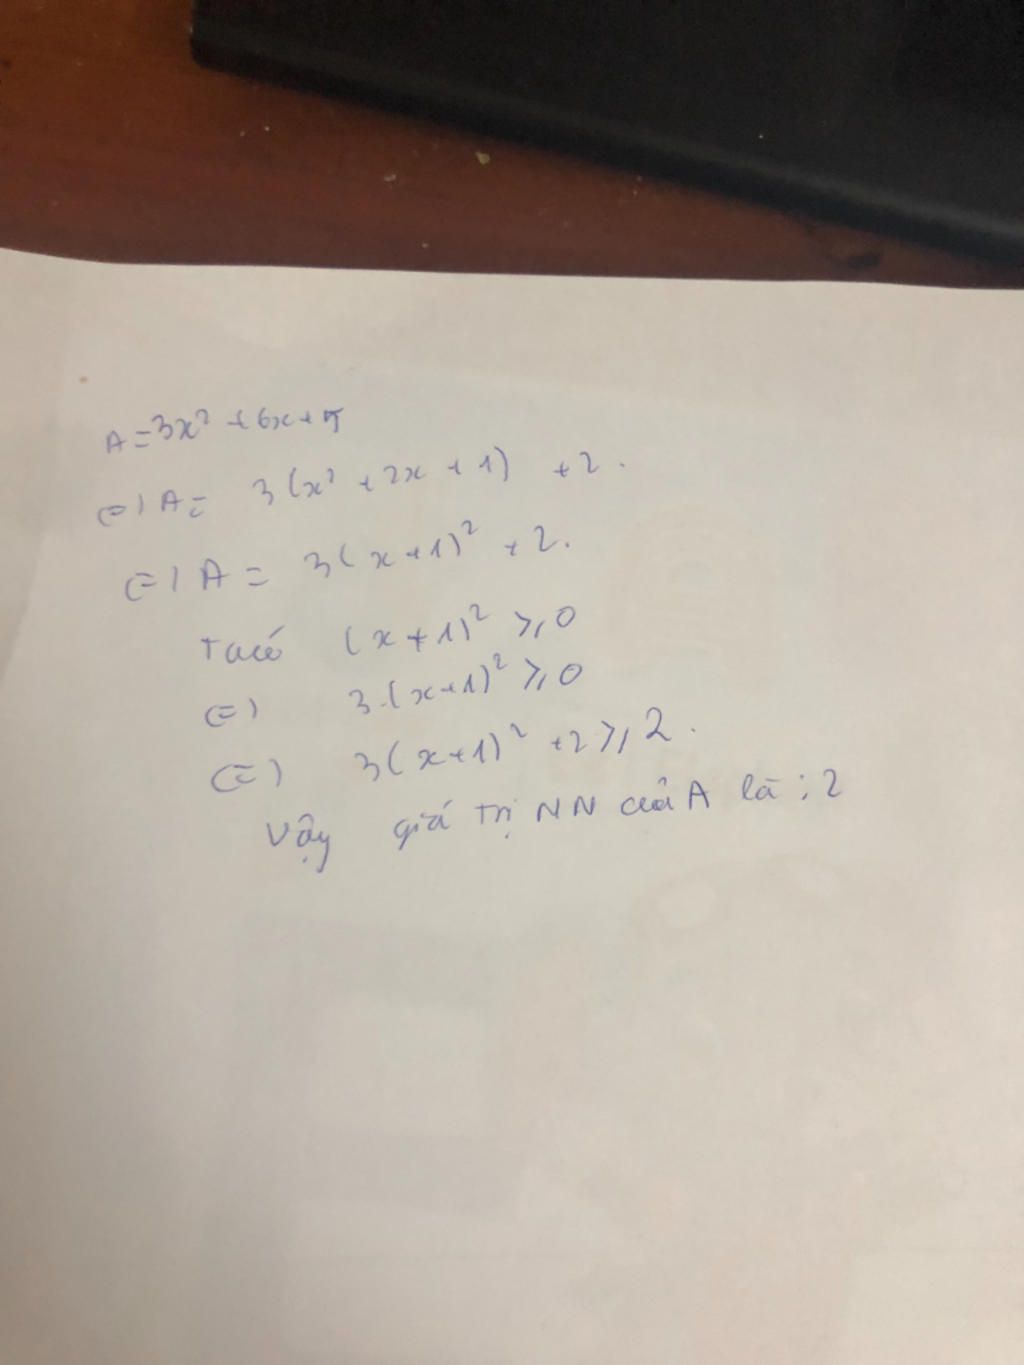 A = 3x² + 6x + 5
(=) A = 3(x² + 2x + 1) + 2.
(=) A = 3(x+1)² + 2.
Ta có (x+1)² ⩾ 0
(=) 3.(x+1)² ⩾ 0
(=) 3(x+1)² + 2 ⩾ 2.
Vậy giá trị NN của A là : 2